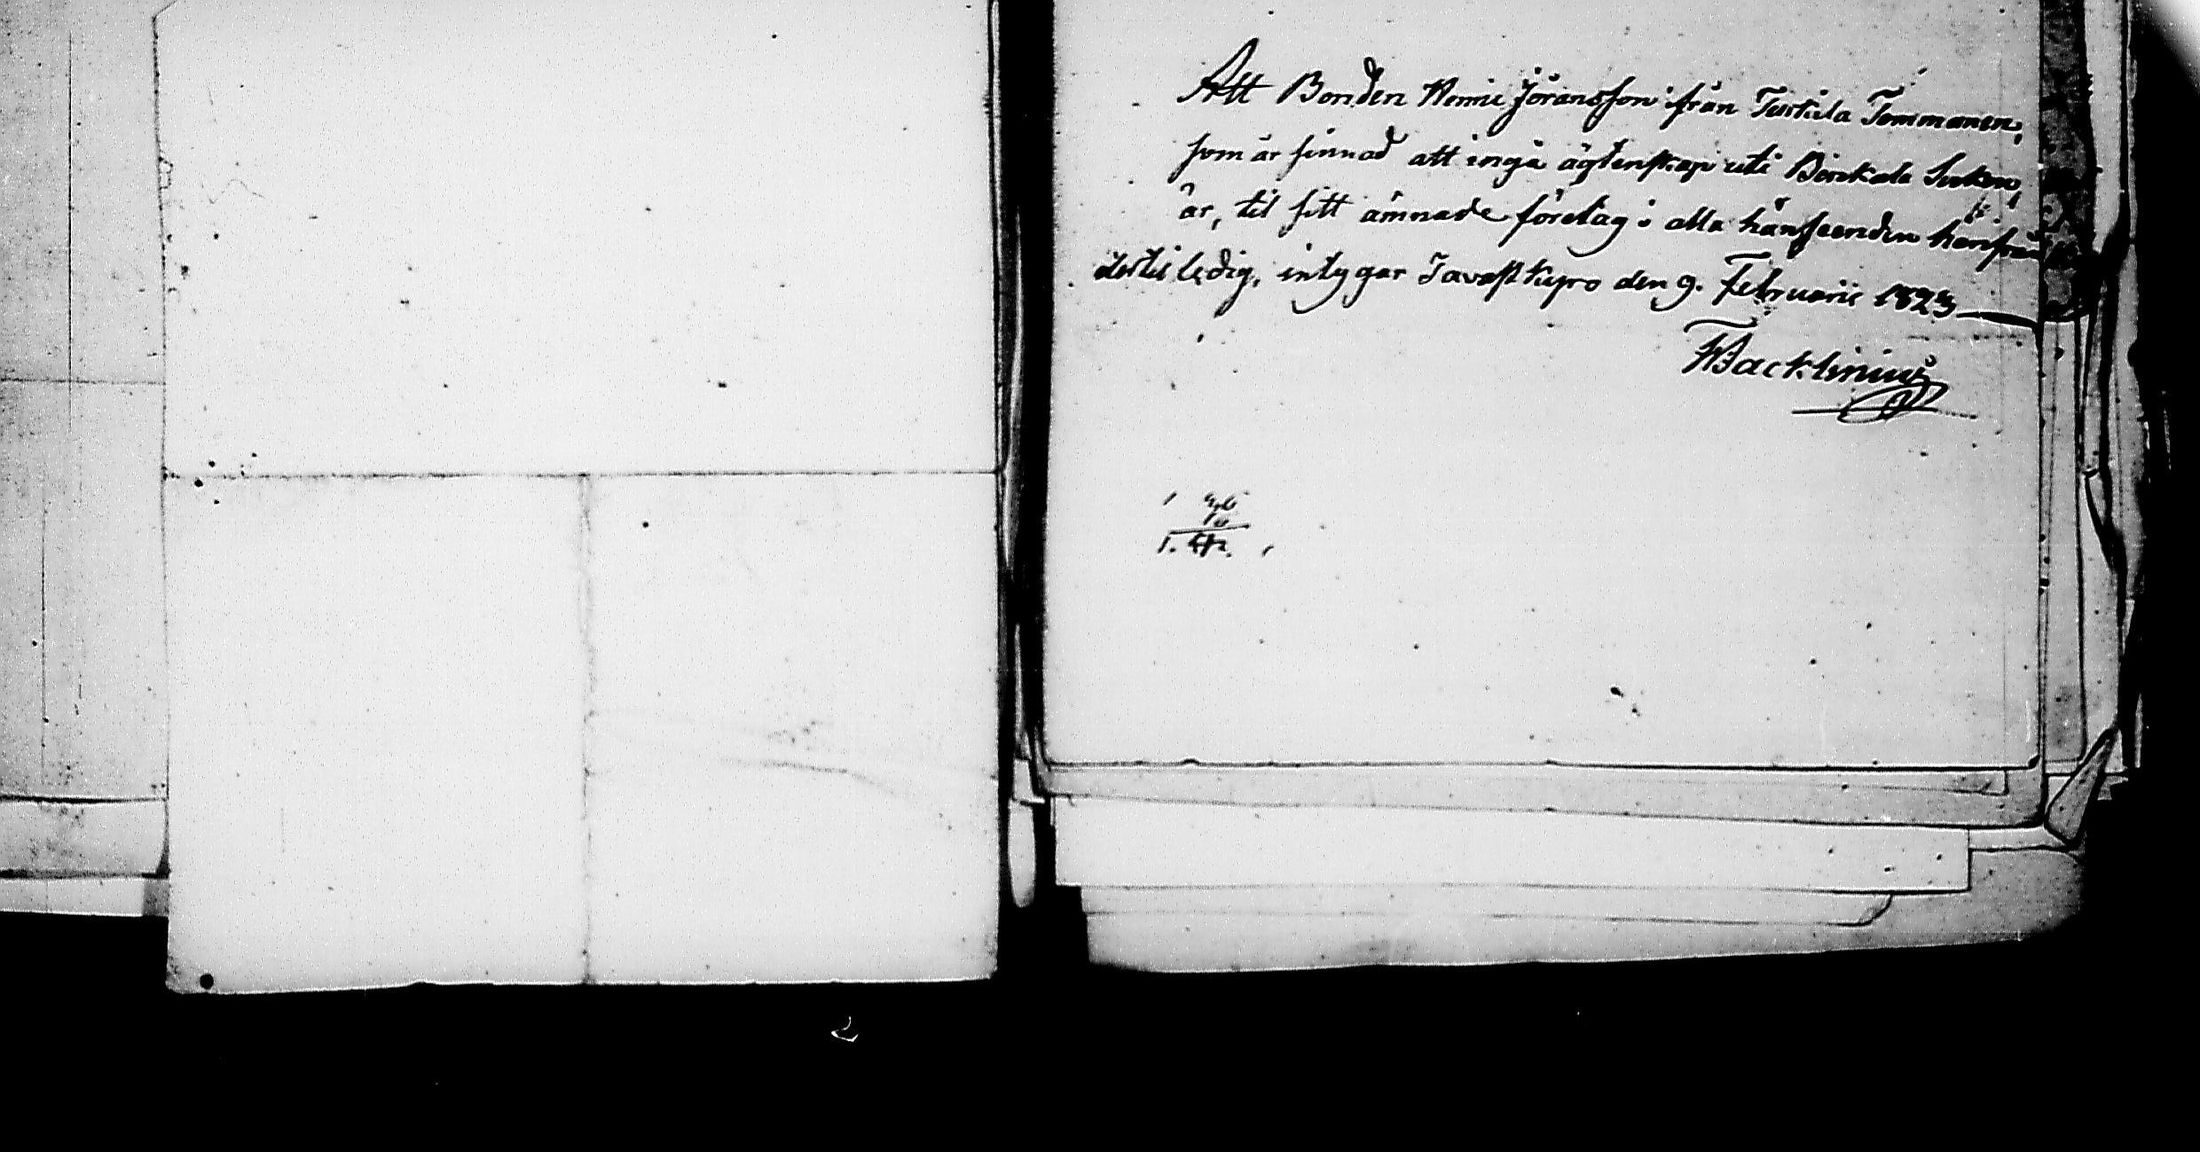 Att Bonden Henric Jöransson från Turkila Tommanen,
som är sinnad att ingå ägtenskap uti Birckala Socken,
är, til sitt ämnade företag i alla hänseenden härifrån
dertil ledig, intygar Tavastkyro den 9. Februarii 1823
Backlinius
1
1.
2